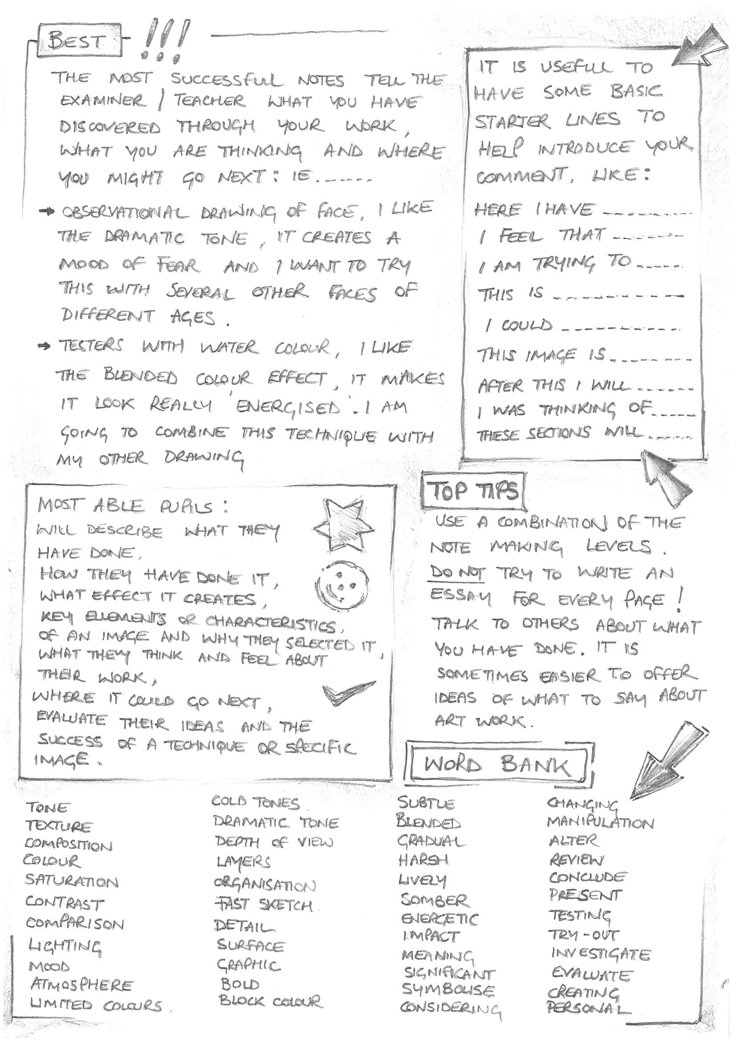 BEST !!!
THE MOST SUCCESSFUL NOTES TELL THE
EXAMINER / TEACHER WHAT YOU HAVE
DISCOVERED THROUGH YOUR WORK,
WHAT YOU ARE THINKING AND WHERE
YOU MIGHT GO NEXT: IE......
→ OBSERVATIONAL DRAWING OF FACE, I LIKE
THE DRAMATIC TONE, IT CREATES A
MOOD OF FEAR AND I WANT TO TRY
THIS WITH SEVERAL OTHER FACES OF
DIFFERENT AGES.
→ TESTERS WITH WATER COLOUR, I LIKE
THE BLENDED COLOUR EFFECT, IT MAKES
IT LOOK REALLY 'ENERGISED'. I AM
GOING TO COMBINE THIS TECHNIQUE WITH
MY OTHER DRAWING
IT IS USEFUL TO
HAVE SOME BASIC
STARTER LINES TO
HELP INTRODUCE YOUR
COMMENT, LIKE:
HERE I HAVE _________
I FEEL THAT ________
I AM TRYING TO _____
THIS IS ____________
I COULD ___________
THIS IMAGE IS _______
AFTER THIS I WILL ______
I WAS THINKING OF _____
THESE SECTIONS WILL _____
MOST ABLE PUPILS:
WILL DESCRIBE WHAT THEY
HAVE DONE,
HOW THEY HAVE DONE IT,
WHAT EFFECT IT CREATES,
KEY ELLEMENTS OR CHARACTERISTICS,
OF AN IMAGE AND WHY THEY SELECTED IT,
WHAT THEY THINK AND FEEL ABOUT
THEIR WORK,
WHERE IT COULD GO NEXT,
EVALUATE THEIR IDEAS AND THE
SUCCESS OF A TECHNIQUE OR SPECIFIC
IMAGE.
TOP TIPS
USE A COMBINATION OF THE
NOTE MAKING LEVELS.
DO NOT TRY TO WRITE AN
ESSAY FOR EVERY PAGE!
TALK TO OTHERS ABOUT WHAT
YOU HAVE DONE. IT IS
SOMETIMES EASIER TO OFFER
IDEAS OF WHAT TO SAY ABOUT
ART WORK.
WORD BANK
TONE
TEXTURE
COMPOSITION
COLOUR
SATURATION
CONTRAST
COMPARISON
LIGHTING
MOOD
ATMOSPHERE
LIMITED COLOURS.
COLD TONES
DRAMATIC TONE
DEPTH OF VIEW
LAYERS
ORGANISATION
FAST SKETCH
DETAIL
SURFACE
GRAPHIC
BOLD
BLOCK COLOUR
SUBTLE
BLENDED
GRADUAL
HARSH
LIVELY
SOMBER
ENERGETIC
IMPACT
MEANING
SIGNIFICANT
SYMBOLISE
CONSIDERING
CHANGING
MANIPULATION
ALTER
REVIEW
CONCLUDE
PRESENT
TESTING
TRY-OUT
INVESTIGATE
EVALUATE
CREATING
PERSONAL